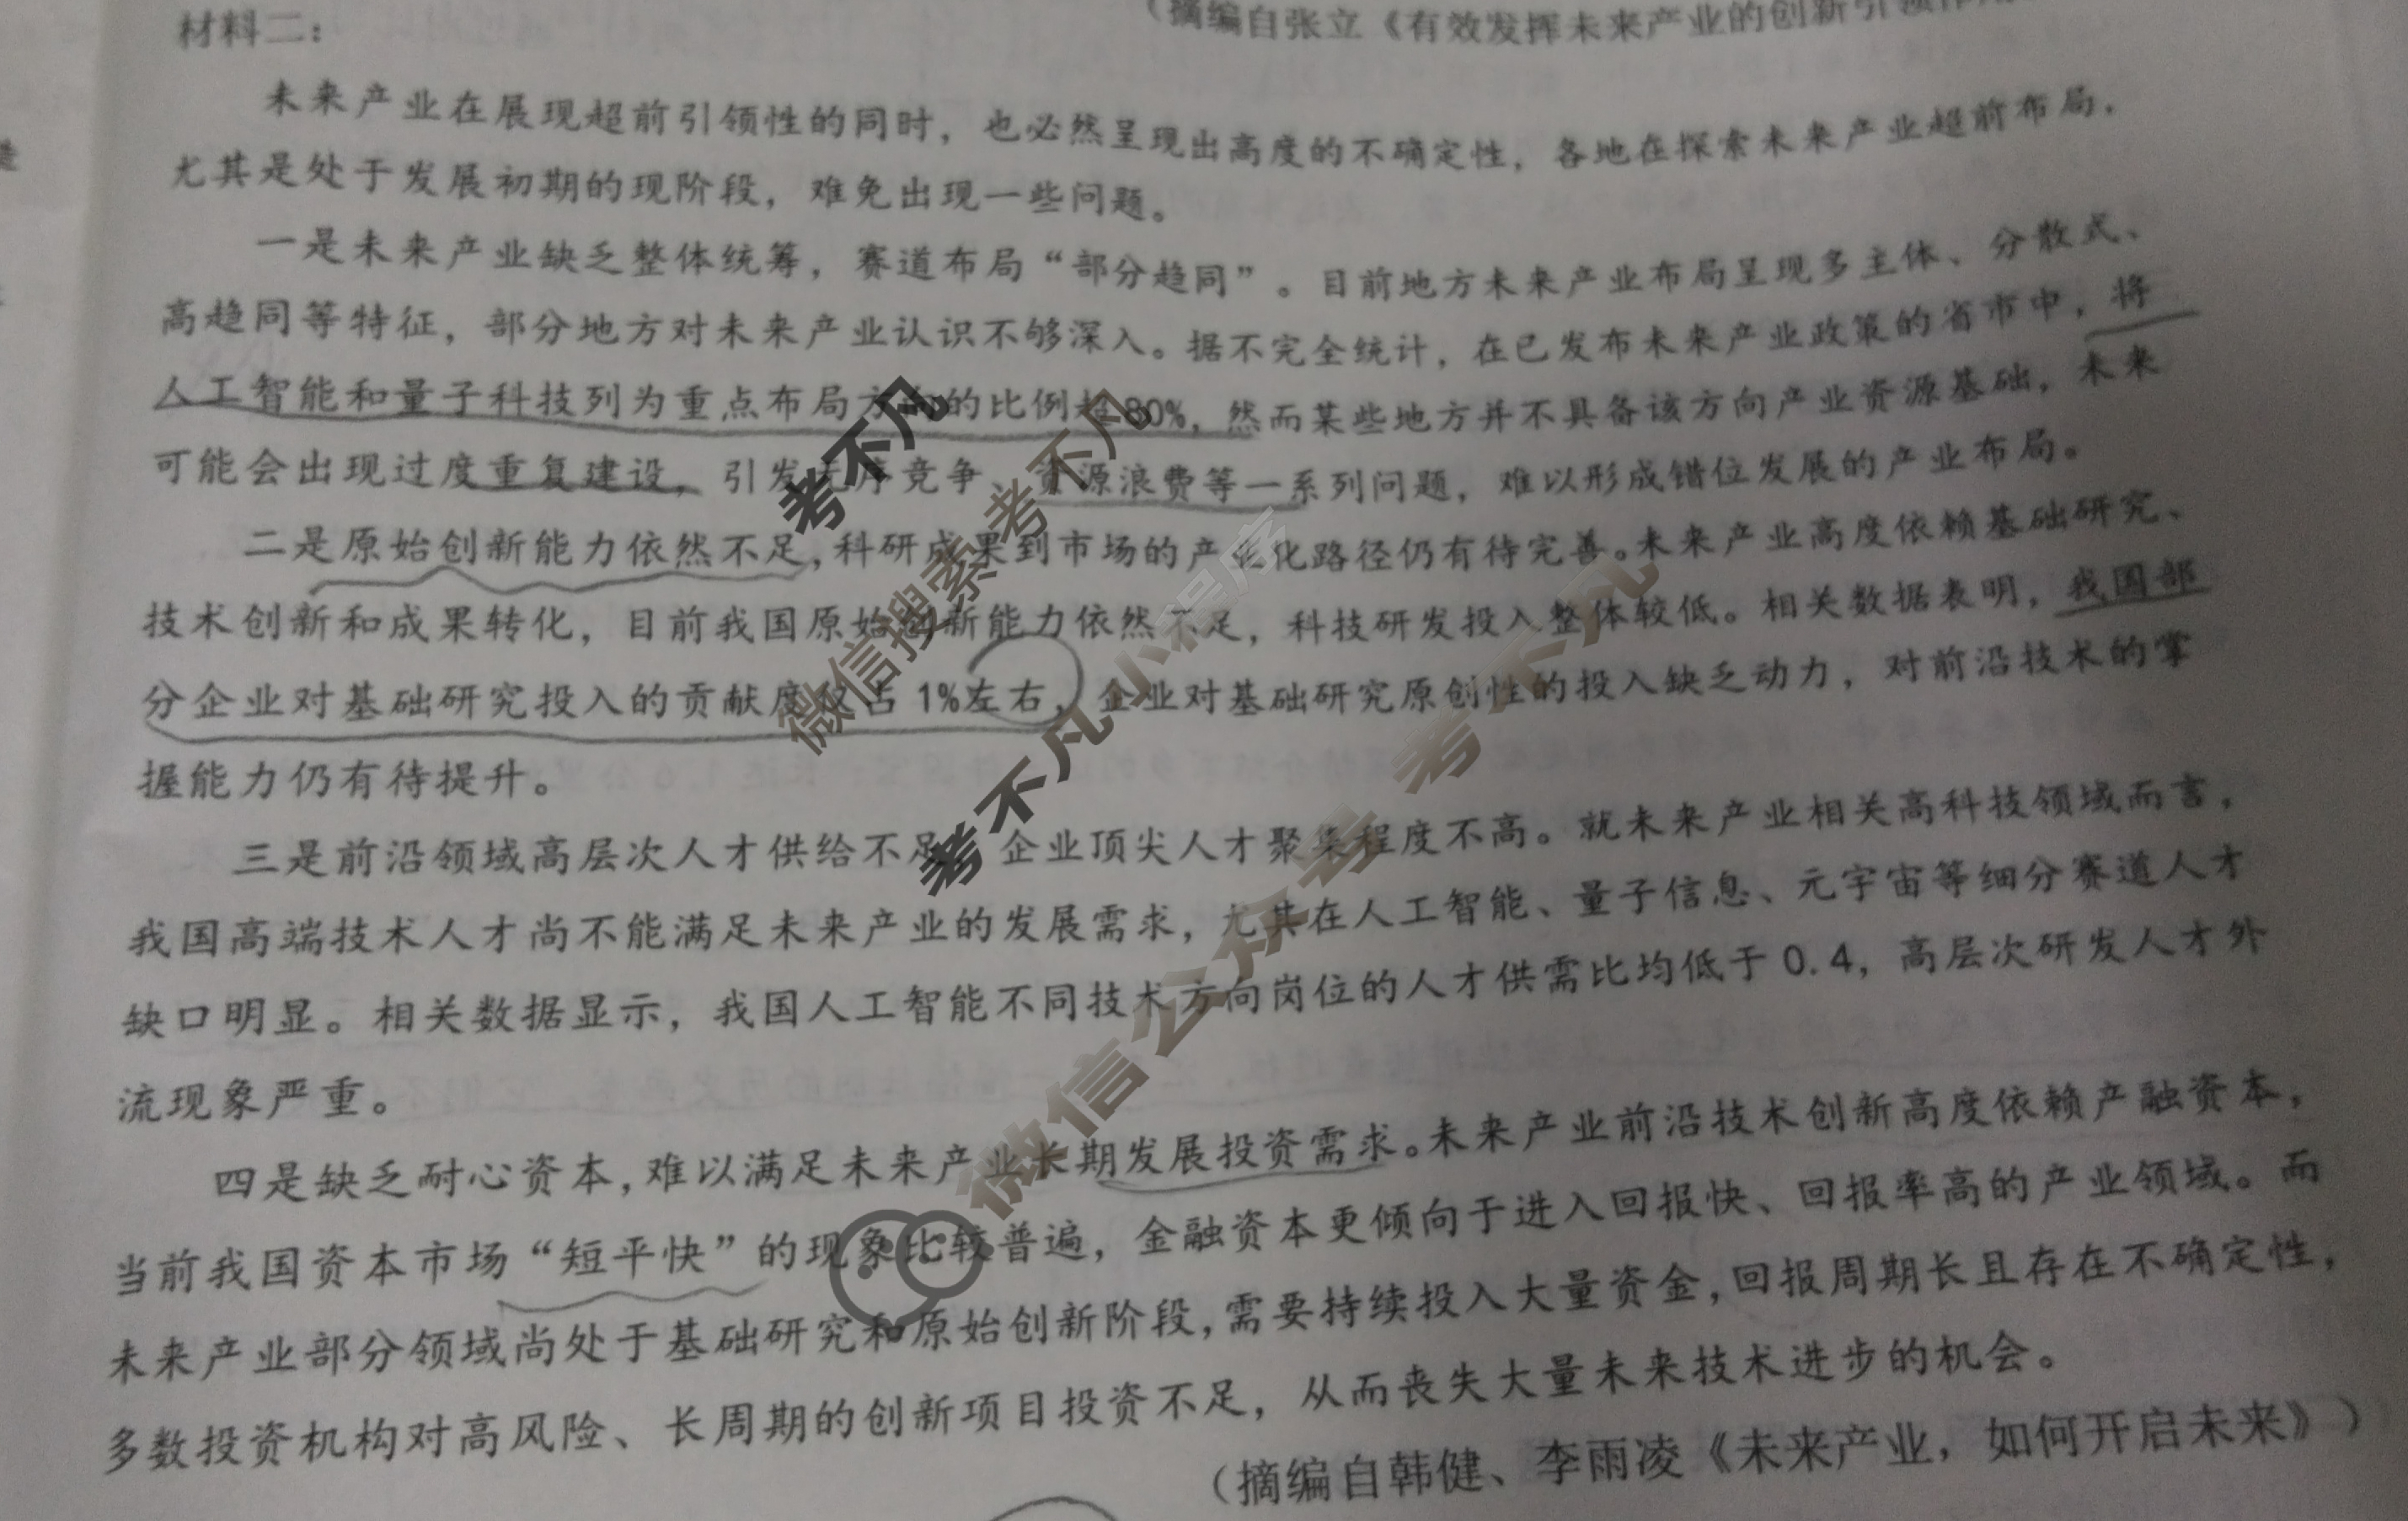 （摘编自张立《有效发挥未来产业的创新引领作用
材料二：
未来产业在展现超前引领性的同时，也必然呈现出高度的不确定性，各地在探索未来产业超前布局，
尤其是处于发展初期的现阶段，难免出现一些问题。
一是未来产业缺乏整体统筹，赛道布局“部分趋同”。目前地方未来产业布局呈现多主体、分散式、
高趋同等特征，部分地方对未来产业认识不够深入。据不完全统计，在已发布未来产业政策的省市中，将
人工智能和量子科技列为重点布局方向的比例超80%，然而某些地方并不具备该方向产业资源基础，未来
可能会出现过度重复建设，引发无序竞争、资源浪费等一系列问题，难以形成错位发展的产业布局。
二是原始创新能力依然不足，科研成果到市场的产业化路径仍有待完善。未来产业高度依赖基础研究、
技术创新和成果转化，目前我国原始创新能力依然不足，科技研发投入整体较低。相关数据表明，我国部
分企业对基础研究投入的贡献度仅占1%左右，企业对基础研究原创性的投入缺乏动力，对前沿技术的掌
握能力仍有待提升。
三是前沿领域高层次人才供给不足，企业顶尖人才聚集程度不高。就未来产业相关高科技领域而言，
我国高端技术人才尚不能满足未来产业的发展需求，尤其在人工智能、量子信息、元宇宙等细分赛道人才
缺口明显。相关数据显示，我国人工智能不同技术方向岗位的人才供需比均低于0.4，高层次研发人才外
流现象严重。
四是缺乏耐心资本，难以满足未来产业长期发展投资需求。未来产业前沿技术创新高度依赖产融资本，
当前我国资本市场“短平快”的现象比较普遍，金融资本更倾向于进入回报快、回报率高的产业领域。而
未来产业部分领域尚处于基础研究和原始创新阶段，需要持续投入大量资金，回报周期长且存在不确定性，
多数投资机构对高风险、长周期的创新项目投资不足，从而丧失大量未来技术进步的机会。
（摘编自韩健、李雨凌《未来产业，如何开启未来》）
考不凡
微信搜索考不凡
考不凡小程序
微信公众号 考不凡